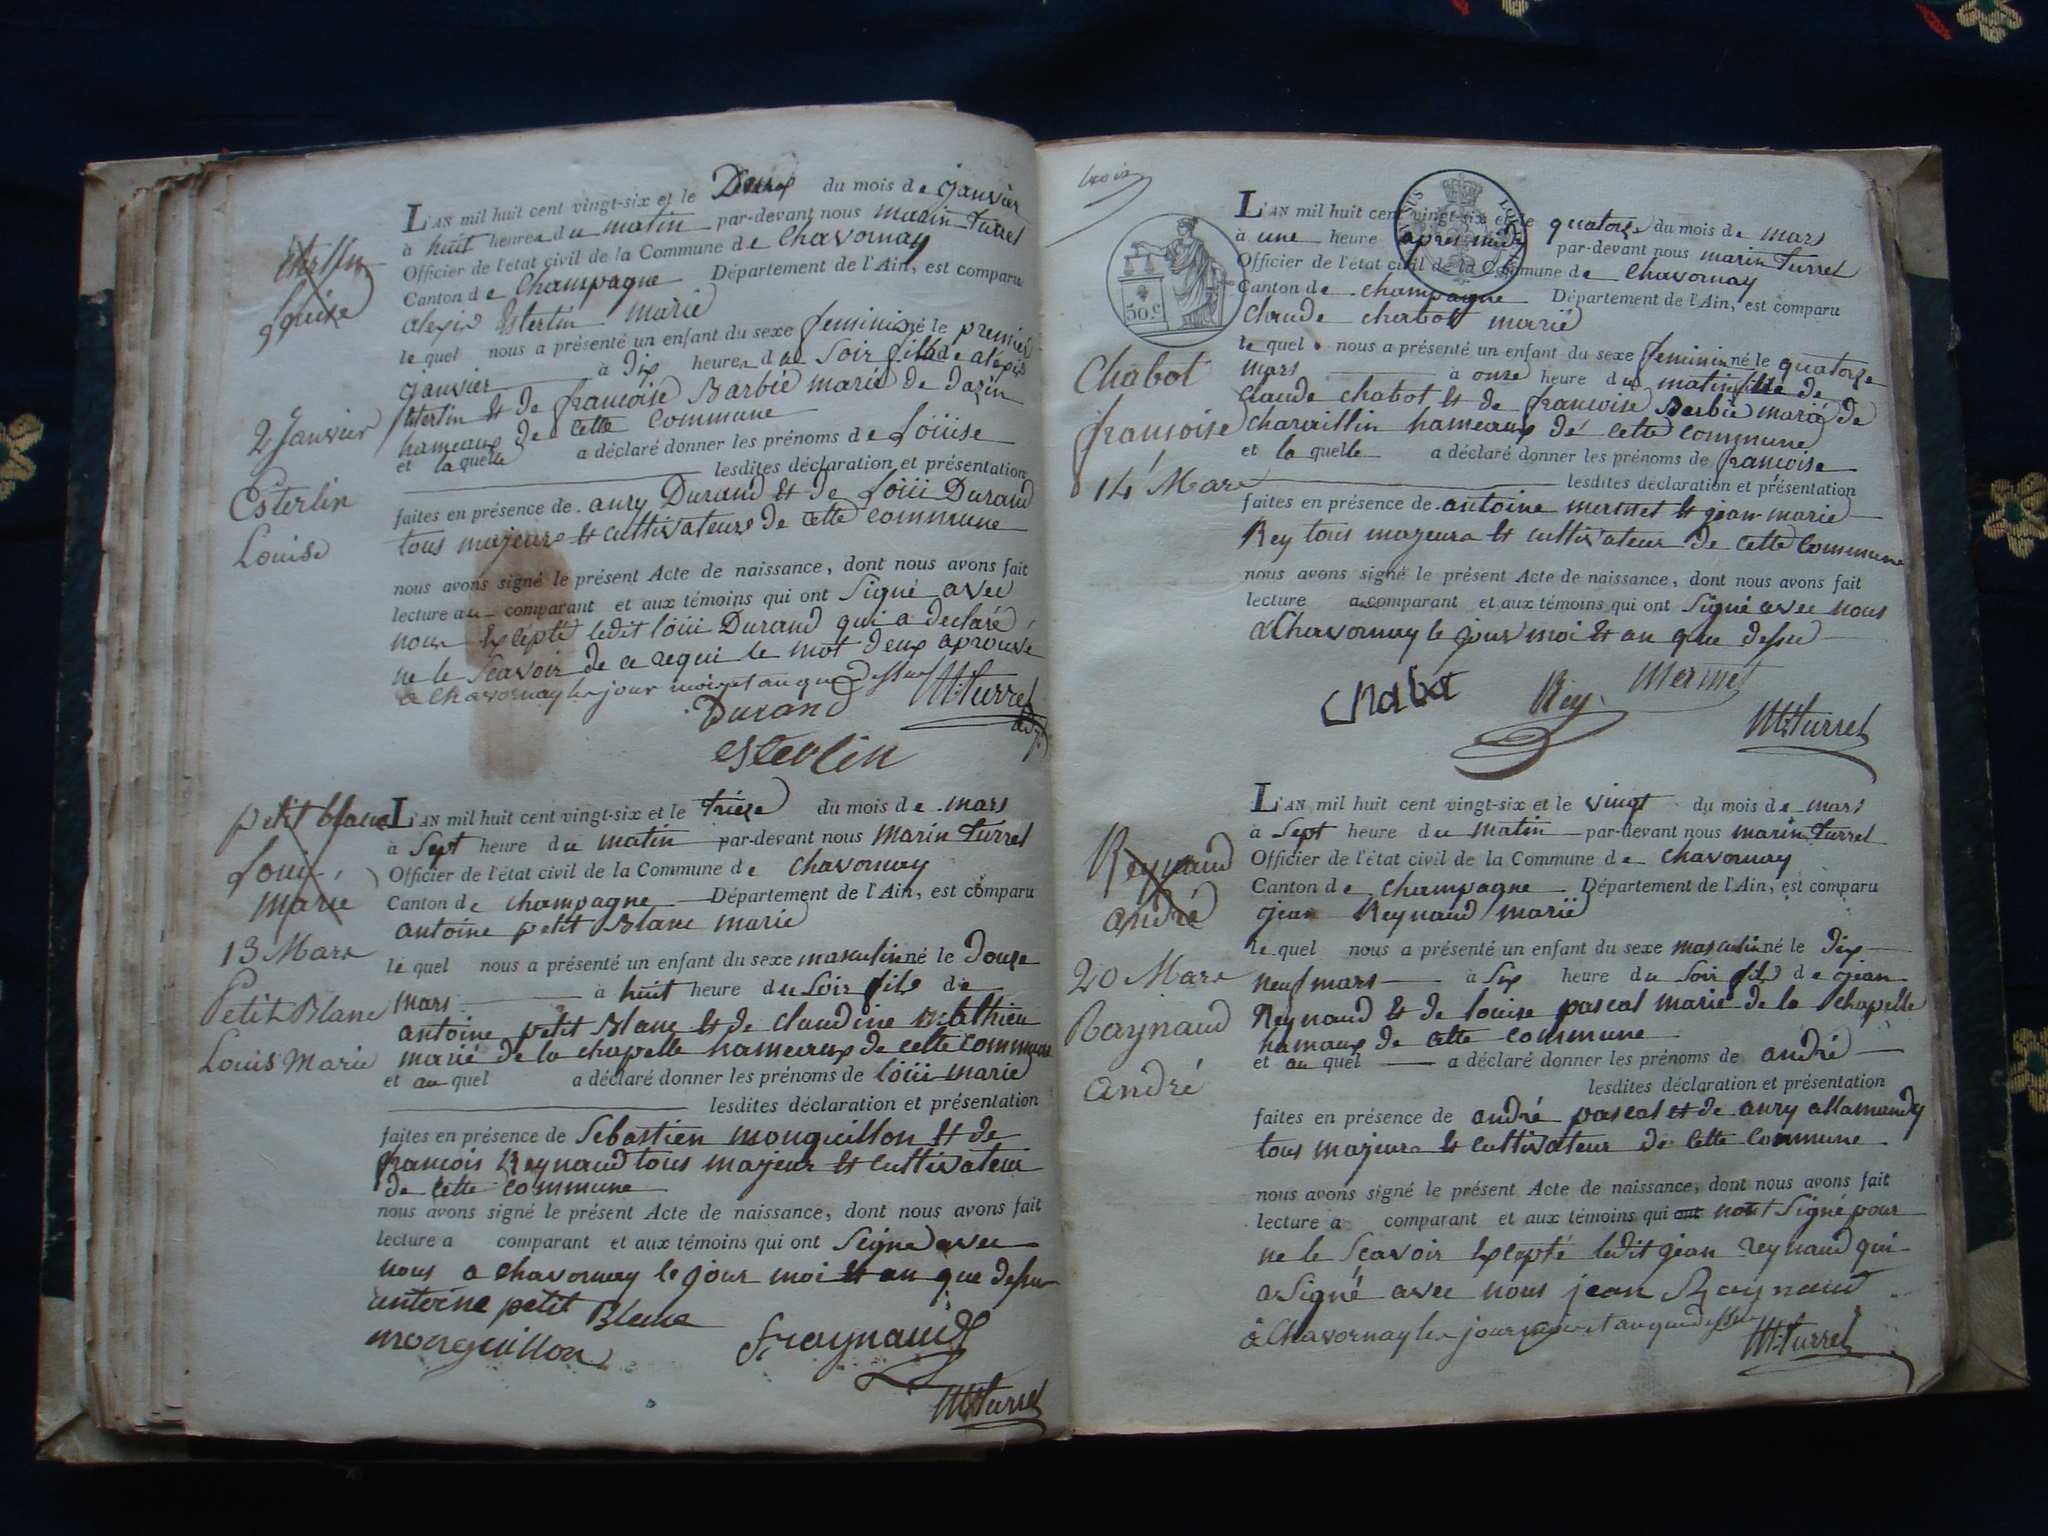 Louise
2 Janvier
Esterlin
Louise
L'AN mil huit cent vingt-six et le Deux du mois de janvier
à huit heure du matin par-devant nous marin turrel
Officier de l'état civil de la Commune de Chavornay
Canton de Champagne Département de l'Ain, est comparu
alexis Esterlin marié
le quel nous a présenté un enfant du sexe feminin né le premier
janvier à dix heures du soir fille de alexis
Esterlin et de francoise Barbié marié de dazin
hameaux de cette commune
et la quelle a déclaré donner les prénoms de Louise
lesdites déclaration et présentation
faites en présence de anry Durand et de Loiii Durand
tous majeurs et cultivateurs de cette commune
nous avons signé le présent Acte de naissance, dont nous avons fait
lecture au comparant et aux témoins qui ont Signé avec
nous Excepté ledit loiii Durand qui a declaré
ne le Scavoir de ce requi le mot deux aprouvé
a Chavornay les jour mois et an que dessus
Durand M: turrel
Esterlin
petit blanc
Loui
marie
13 Mars
Petit Blanc
Louis Marie
L'AN mil huit cent vingt-six et le trieze du mois de mars
à Sept heure du matin par-devant nous marin turrel
Officier de l'état civil de la Commune de Chavornay
Canton de champagne Département de l'Ain, est comparu
antoine petit Blanc marié
le quel nous a présenté un enfant du sexe masculin né le douze
mars à huit heure du Soir fils de
antoine petit Blanc et de claudine Mathieu
marié de la chapelle hameaux de cette commune
et au quel a déclaré donner les prénoms de loiii marie
lesdites déclaration et présentation
faites en présence de Sebastien monguillon et de
francois Reynaud tous majeur et cultivateur
de cette commune
nous avons signé le présent Acte de naissance, dont nous avons fait
lecture a comparant et aux témoins qui ont Signé avec
nous a Chavornay le jour moi et an que dessu
antoine petit Blanc
monguillon f raynaud
M: turrel
trois
50.c
Chabot
francoise
14 Mars
L'AN mil huit cent vingt-six et le quatorze du mois de mars
à une heure apres midi par-devant nous marin turrel
Officier de l'état civil de la Commune de Chavornay
Canton de champagne Département de l'Ain, est comparu
claude chabot marié
le quel nous a présenté un enfant du sexe feminin né le quatorze
mars à onze heure du matin fille de
claude chabot et de francoise Barbié marié de
charaillin hameaux de cette commune
et la quelle a déclaré donner les prénoms de francoise
lesdites déclaration et présentation
faites en présence de antoine mermet et jean marie
Rey tous majeurs et cultivateur de cette commune
nous avons signé le présent Acte de naissance, dont nous avons fait
lecture au comparant et aux témoins qui ont Signé avec nous
a Chavornay le jour moi et an que dessu
chabot Rey mermet
M: turrel
Reynaud
andré
20 Mars
Raynaud
andré
L'AN mil huit cent vingt-six et le vingt du mois de mars
à Sept heure du matin par-devant nous marin turrel
Officier de l'état civil de la Commune de Chavornay
Canton de champagne Département de l'Ain, est comparu
jean Reynaud marié
le quel nous a présenté un enfant du sexe masculin né le dix
neuf mars à Six heure du Soir fils de jean
Reynaud et de louise pascal marié de la chapelle
hamaux de cette commune
et au quel a déclaré donner les prénoms de andré
lesdites déclaration et présentation
faites en présence de andré pascal et de anry allamandy
tous majeurs et cultivateur de cette commune
nous avons signé le présent Acte de naissance, dont nous avons fait
lecture a comparant et aux témoins qui ont nont Signé pour
ne le Scavoir Excepté ledit jean reynaud qui
a Signé avec nous jean Raynaud
à Chavornay les jour mois et an que dessus
M: turrel